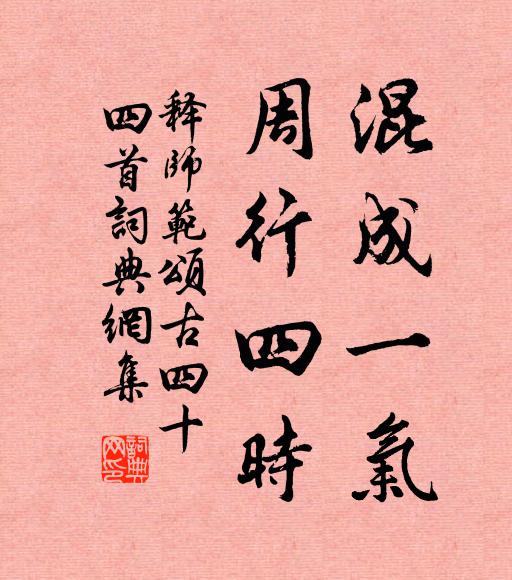 混成一氣
周行四時
释師範頌古四十
四首詞典網集
詞典
网印